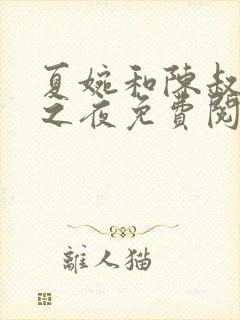 夏婉和陳叔
之夜免費閱
離人猫